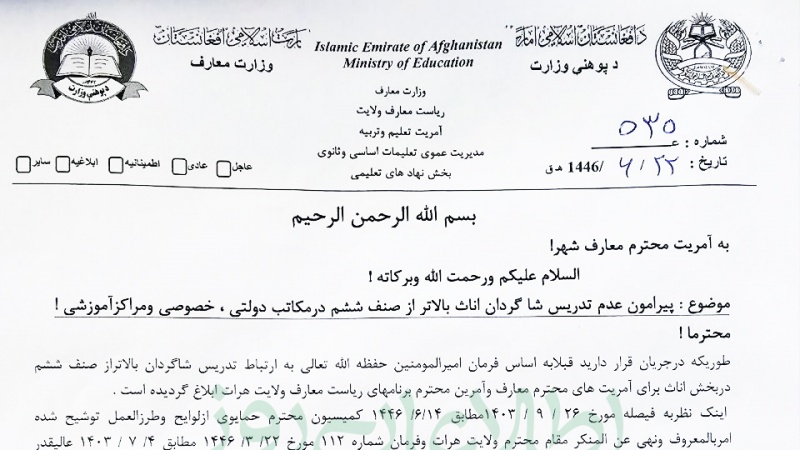 د افغانستان اسلامی امارت
د پوهنې وزارت
Islamic Emirate of Afghanistan
Ministry of Education
امارت اسلامی افغانستان
وزارت معارف
د پوهنې وزارت
وزارت معارف
ریاست معارف ولایت
آمریت تعلیم وتربیه
مدیریت عمومی تعلیمات اساسی وثانوی
بخش نهاد های تعلیمی
شماره : ۵۳۵
تاریخ : ۲۲ / ۶ /1446 هـ ق
عاجل عادی اطمینانیه ابلاغیه سایر
بسم الله الرحمن الرحیم
به آمریت محترم معارف شهر!
السلام علیکم ورحمت الله وبرکاته !
موضوع : پیرامون عدم تدریس شا گردان اناث بالاتر از صنف ششم درمکاتب دولتی ، خصوصی ومراکزآموزشی !
محترما !
طوریکه درجریان قرار دارید قبلابه اساس فرمان امیرالمومنین حفظه الله تعالی به ارتباط تدریس شاگردان بالاتراز صنف ششم
دربخش اناث برای آمریت های محترم معارف وآمرین محترم برنامهای ریاست معارف ولایت هرات ابلاغ گردیده است .
اینک نظربه فیصله مورخ ۲۶ / ۹ / ۱۴۰۳مطابق ۶/۱۴/ ۱۴۴۶ کمیسیون محترم حمایوی ازلوایح وطرزالعمل توشیح شده
امربالمعروف ونهی عن المنکر مقام محترم ولایت هرات وفرمان شماره ۱۱۲ مورخ ۲۲/ ۳/ ۱۴۴۶ مطابق ۴/ ۷ / ۱۴۰۳ عالیقدر
اطلاعات روز